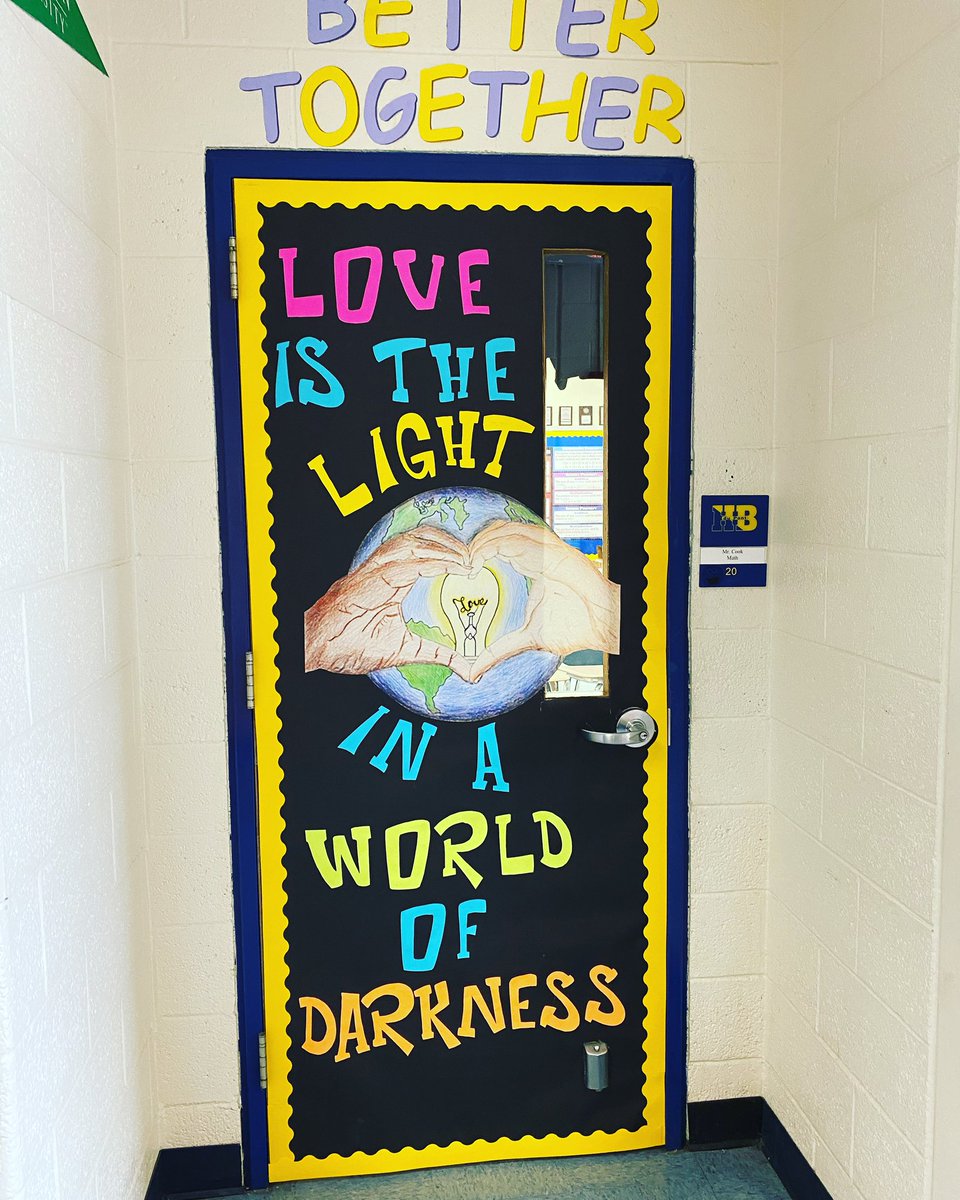 SITY
BETTER
TOGETHER
LOVE
IS THE
LIGHT
Love
IN A
WORLD
OF
DARKNESS
HB
Mr. Cook
Math
20